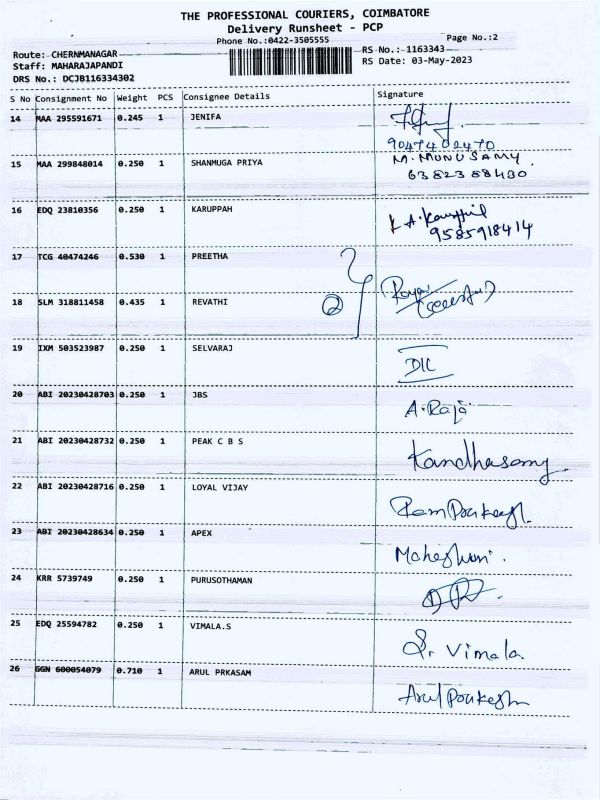 THE PROFESSIONAL COURIERS, COIMBATORE
Delivery Runsheet - PCP
Phone No.:0422-3505555 Page No.:2
Route: CHERNMANAGAR RS No.: 1163343
Staff: MAHARAJAPANDI RS Date: 03-May-2023
DRS No.: DCJB116334302
S No Consignment No Weight PCS Consignee Details Signature
14 MAA 295591671 0.245 1 JENIFA
9047402470
15 MAA 299848014 0.250 1 SHANMUGA PRIYA M. MUNUSAMY.
6382358430
16 EDQ 23810356 0.250 1 KARUPPAH
9585918414
17 TCG 40474246 0.530 1 PREETHA
18 SLM 318811458 0.435 1 REVATHI 2
19 IXM 503523987 0.250 1 SELVARAJ DIC
20 ABI 20230428703 0.250 1 JBS A.Raja
21 ABI 20230428732 0.250 1 PEAK C B S Kandhasamy.
22 ABI 20230428716 0.250 1 LOYAL VIJAY
23 ABI 20230428634 0.250 1 APEX
24 KRR 5739749 0.250 1 PURUSOTHAMAN
25 EDQ 25594782 0.250 1 VIMALA.S S. Vimala.
26 GGN 600054079 0.710 1 ARUL PRKASAM Arul Prakash